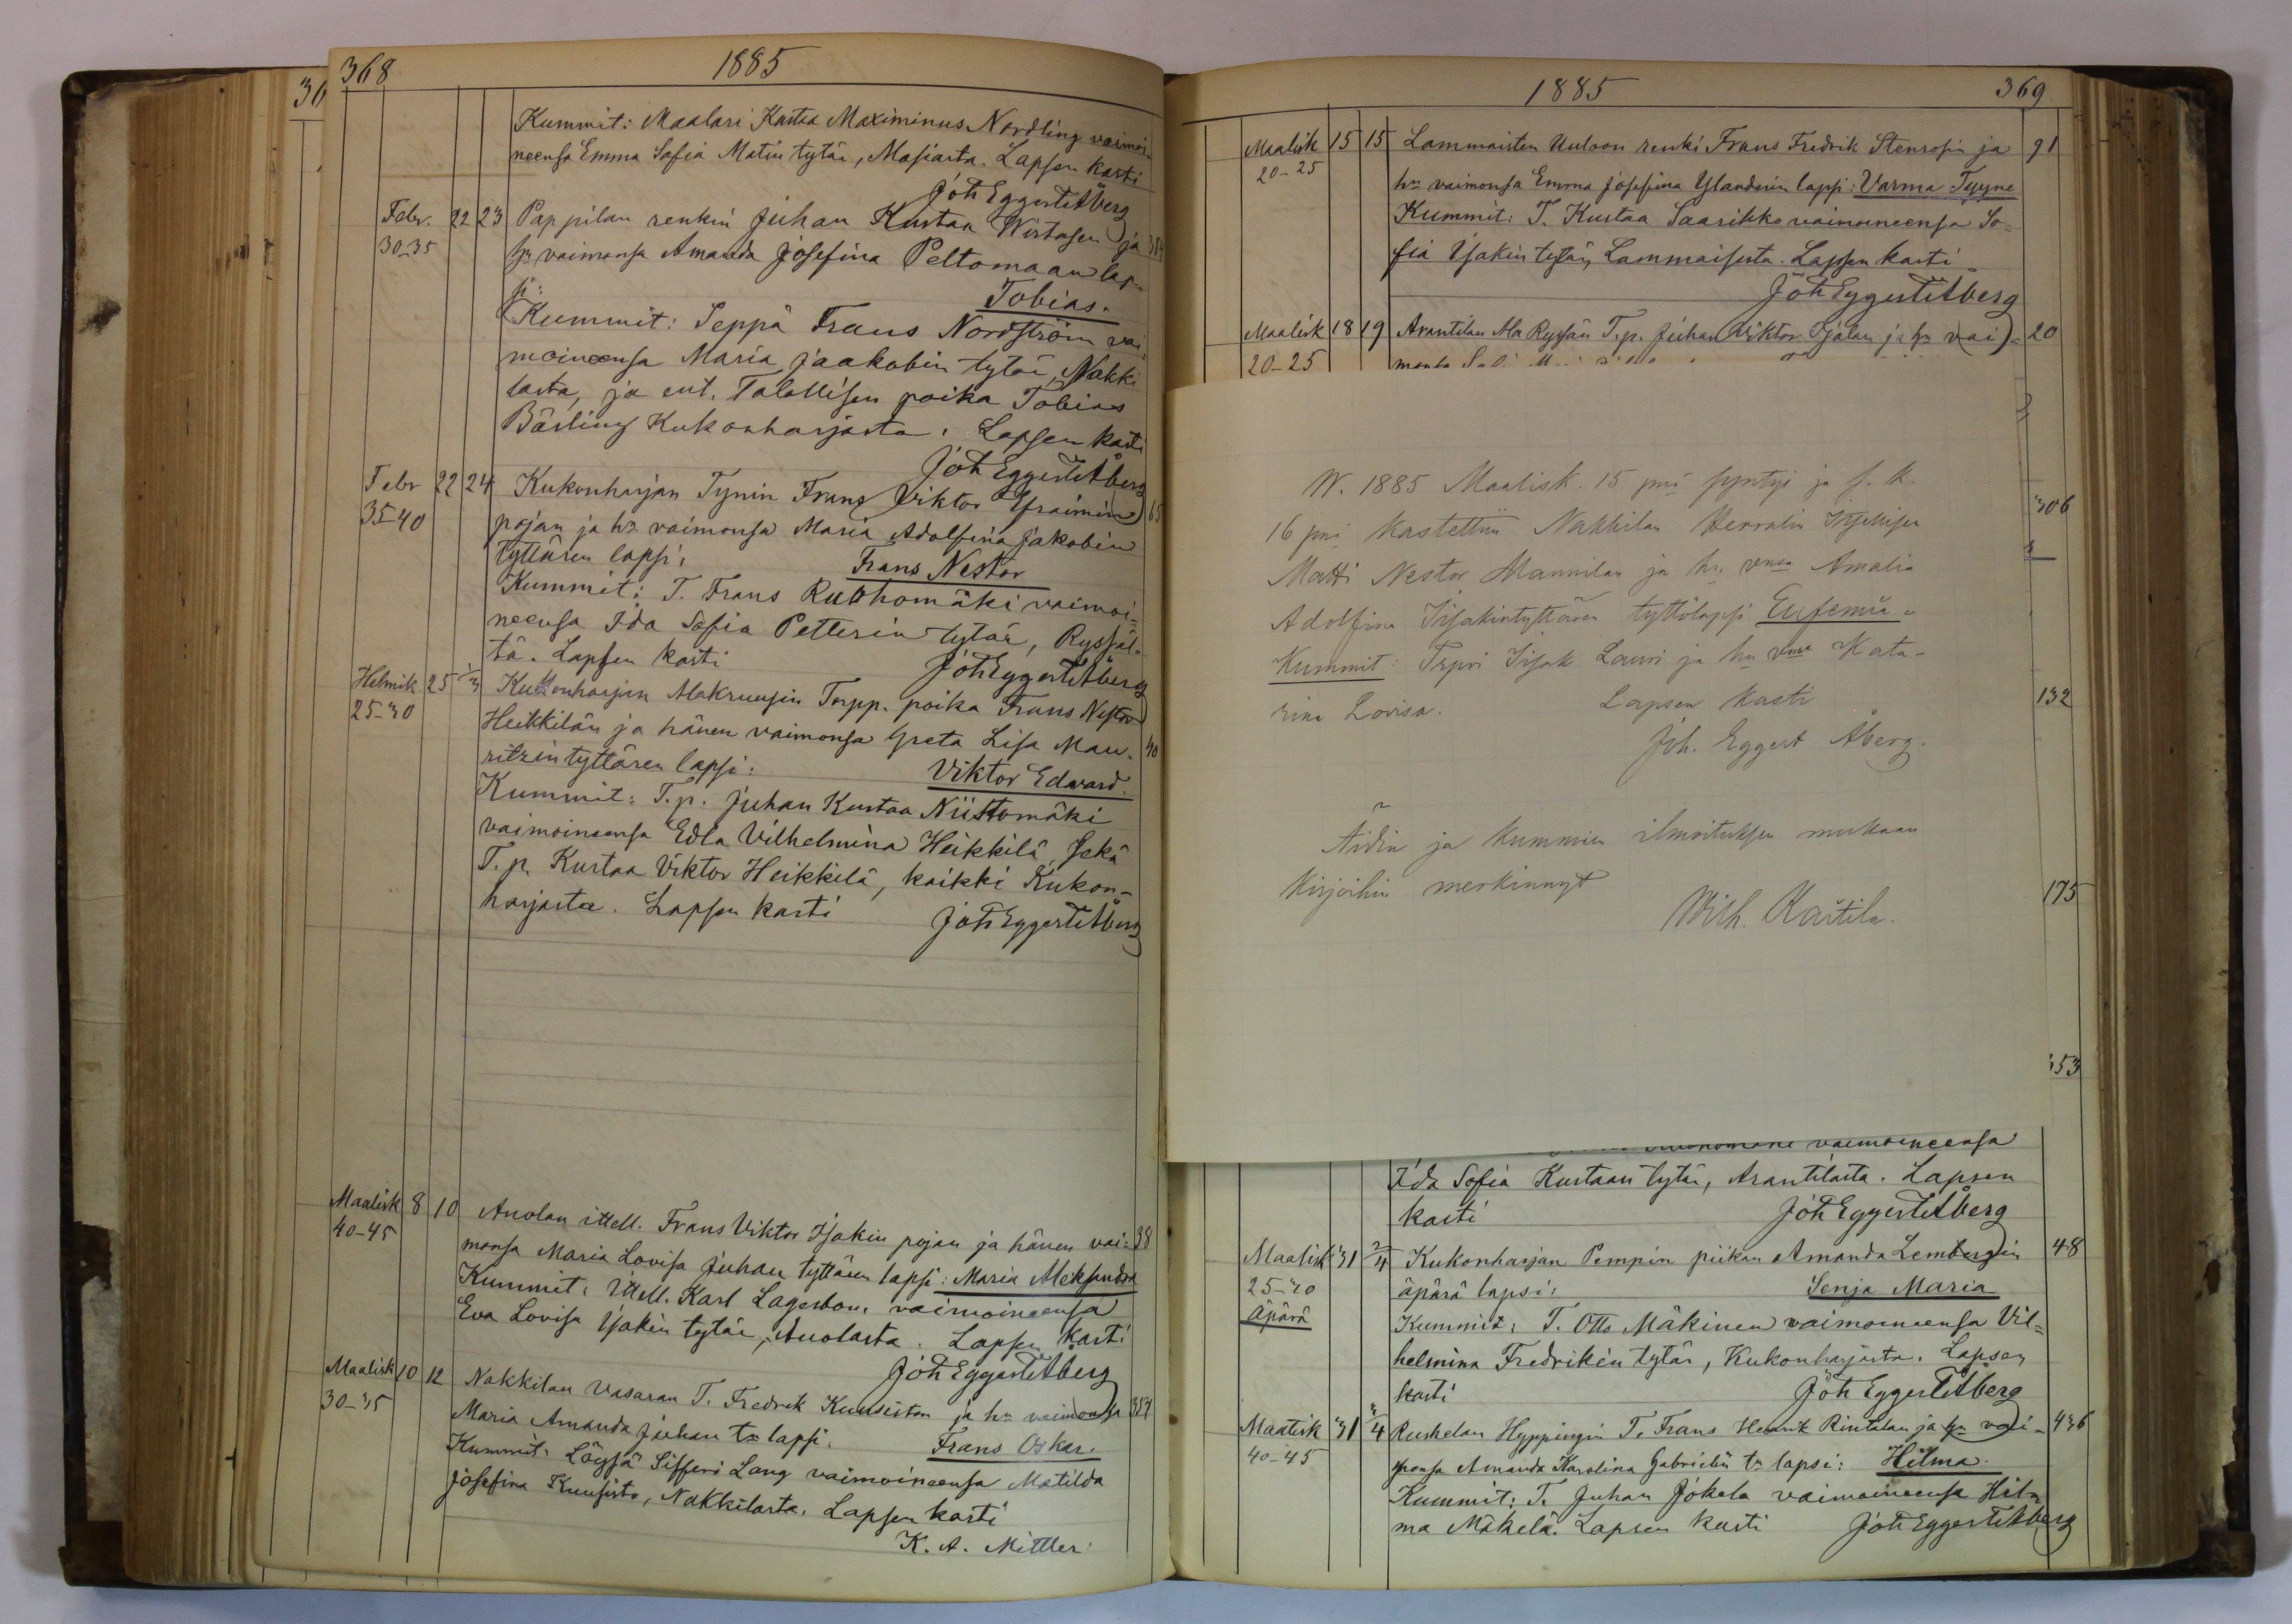 36
368
1885
Kummit: Maalari Kustaa Maximinus Nordling vaimoi-
neensa Emma Sofia Matin tytär, Masiasta. Lapsen kasti
Joh Eggert Åberg
Febr. 22 23 Pappilan renkin Juhan Kustaa Wirtasen ja
30-35 hn vaimonsa Amanda Josefina Peltomaan lap-
si: Tobias.
Kummit: Seppä Frans Nordström vai-
moineensa Maria Jaakobin tytär, Nakki
lasta, ja ent. Talollisen poika Tobias
Bärling Kukonharjasta. Lapsen kasti
Joh Eggert Åberg
Febr 22 24 Kukonharjan Tynin Frans Viktor Efraimin 65
35-40 pojan ja hn vaimonsa Maria Adolfina Jakobin
tyttären lapsi: Frans Nestor
Kummit: T. Frans Ruohomäki vaimoi-
neensa Ida Sofia Petterin tytär, Ryssäl-
tä. Lapsen kasti Joh Eggert Åberg
Helmik 25 1/3 Kukonharjan Alakruusin Torpp. poika Frans Nestor
25-30 Heikkilän ja hänen vaimonsa Greta Lisa Mau- 40
ritzin tyttären lapsi: Viktor Edvard.
Kummit: T.p. Juhan Kustaa Niittomäki
vaimoineensa Edla Vilhelmina Heikkilä, Sekä
T.p. Kustaa Viktor Heikkilä, kaikki Kukon-
harjasta. Lapsen kasti Joh Eggert Åberg
Maalisk 8 10 Anolan ittell. Frans Viktor Isakin pojan ja hänen vai- 38
40-45 monsa Maria Lovisa Juhan tyttären lapsi: Maria Aleksandra
Kummit: Ittell. Karl Lagerbom vaimoineensa
Eva Lovisa Isakin tytär, Anolasta. Lapsen kasti
Joh Eggert Åberg
Maalisk 10 12 Nakkilan Vasaran T. Fredrek Kuusiston ja hn vaimonsa 357
30-35 Maria Amanda Juhan tn lapsi: Frans Oskar.
Kummit: Löysä Sifferi Lang vaimoineensa Matilda
Josefina Kuusisto, Nakkilasta. Lapsen kasti
K. A. Mittler
1885
369
Maalisk 15 15 Lammaisten Uuloon renki Frans Fredrik Stenrosin ja 91
20-25 hn vaimonsa Emma Josefina Ylanderin lapsi: Varma Tyyne
Kummit: T. Kustaa Saarikko vaimoineensa So-
fia Isakin tytär, Lammaisista. Lapsen kasti
Joh Eggert Åberg
Maalisk 18 19 Arantilan Ala Ryssän T.p. Juhan Viktor Ojalan ja hn vai- 20
20-25
W. 1885 Maalisk. 15 pnä syntyi ja s. k.
16 pnä kastettiin Nakkilan Herralin
306
Matti Nestor Mannilan ja hn vnsa Amalia
Adolfina Iisakintyttären tyttölapsi Eufemia.
Kummit: Trpri Iisak Lauri ja hn vnsa Kata-
rina Lovisa. Lapsen kasti
132
Joh. Eggert Åberg.
Äidin ja kummien ilmoituksen mukaan
kirjoihin merkinnyt
175
Wilh. Kaitila.
353
vaimoineensa
Ida Sofia Kustaan tytär, Arantilasta. Lapsen
kasti Joh Eggert Åberg
Maalisk 31 2/4 Kukonharjan Pempin piikan Amanda Lembergin 48
25-30 äpärä lapsi: Senja Maria
Äpärä Kummit: T. Otto Mäkinen vaimoineensa Vil-
helmina Fredrikin tytär, Kukonharjasta. Lapsen
kasti Joh Eggert Åberg
Maalisk 31 3/4 Ruskelan Hyppingin T. Frans Henrik Rintalan ja hn vai- 436
40-45 monsa Amanda Karolina Gabrielin tn lapsi: Hilma.
Kummit: T. Juhan Jokela vaimoineensa Hil-
ma Mäkelä. Lapsen kasti Joh Eggert Åberg